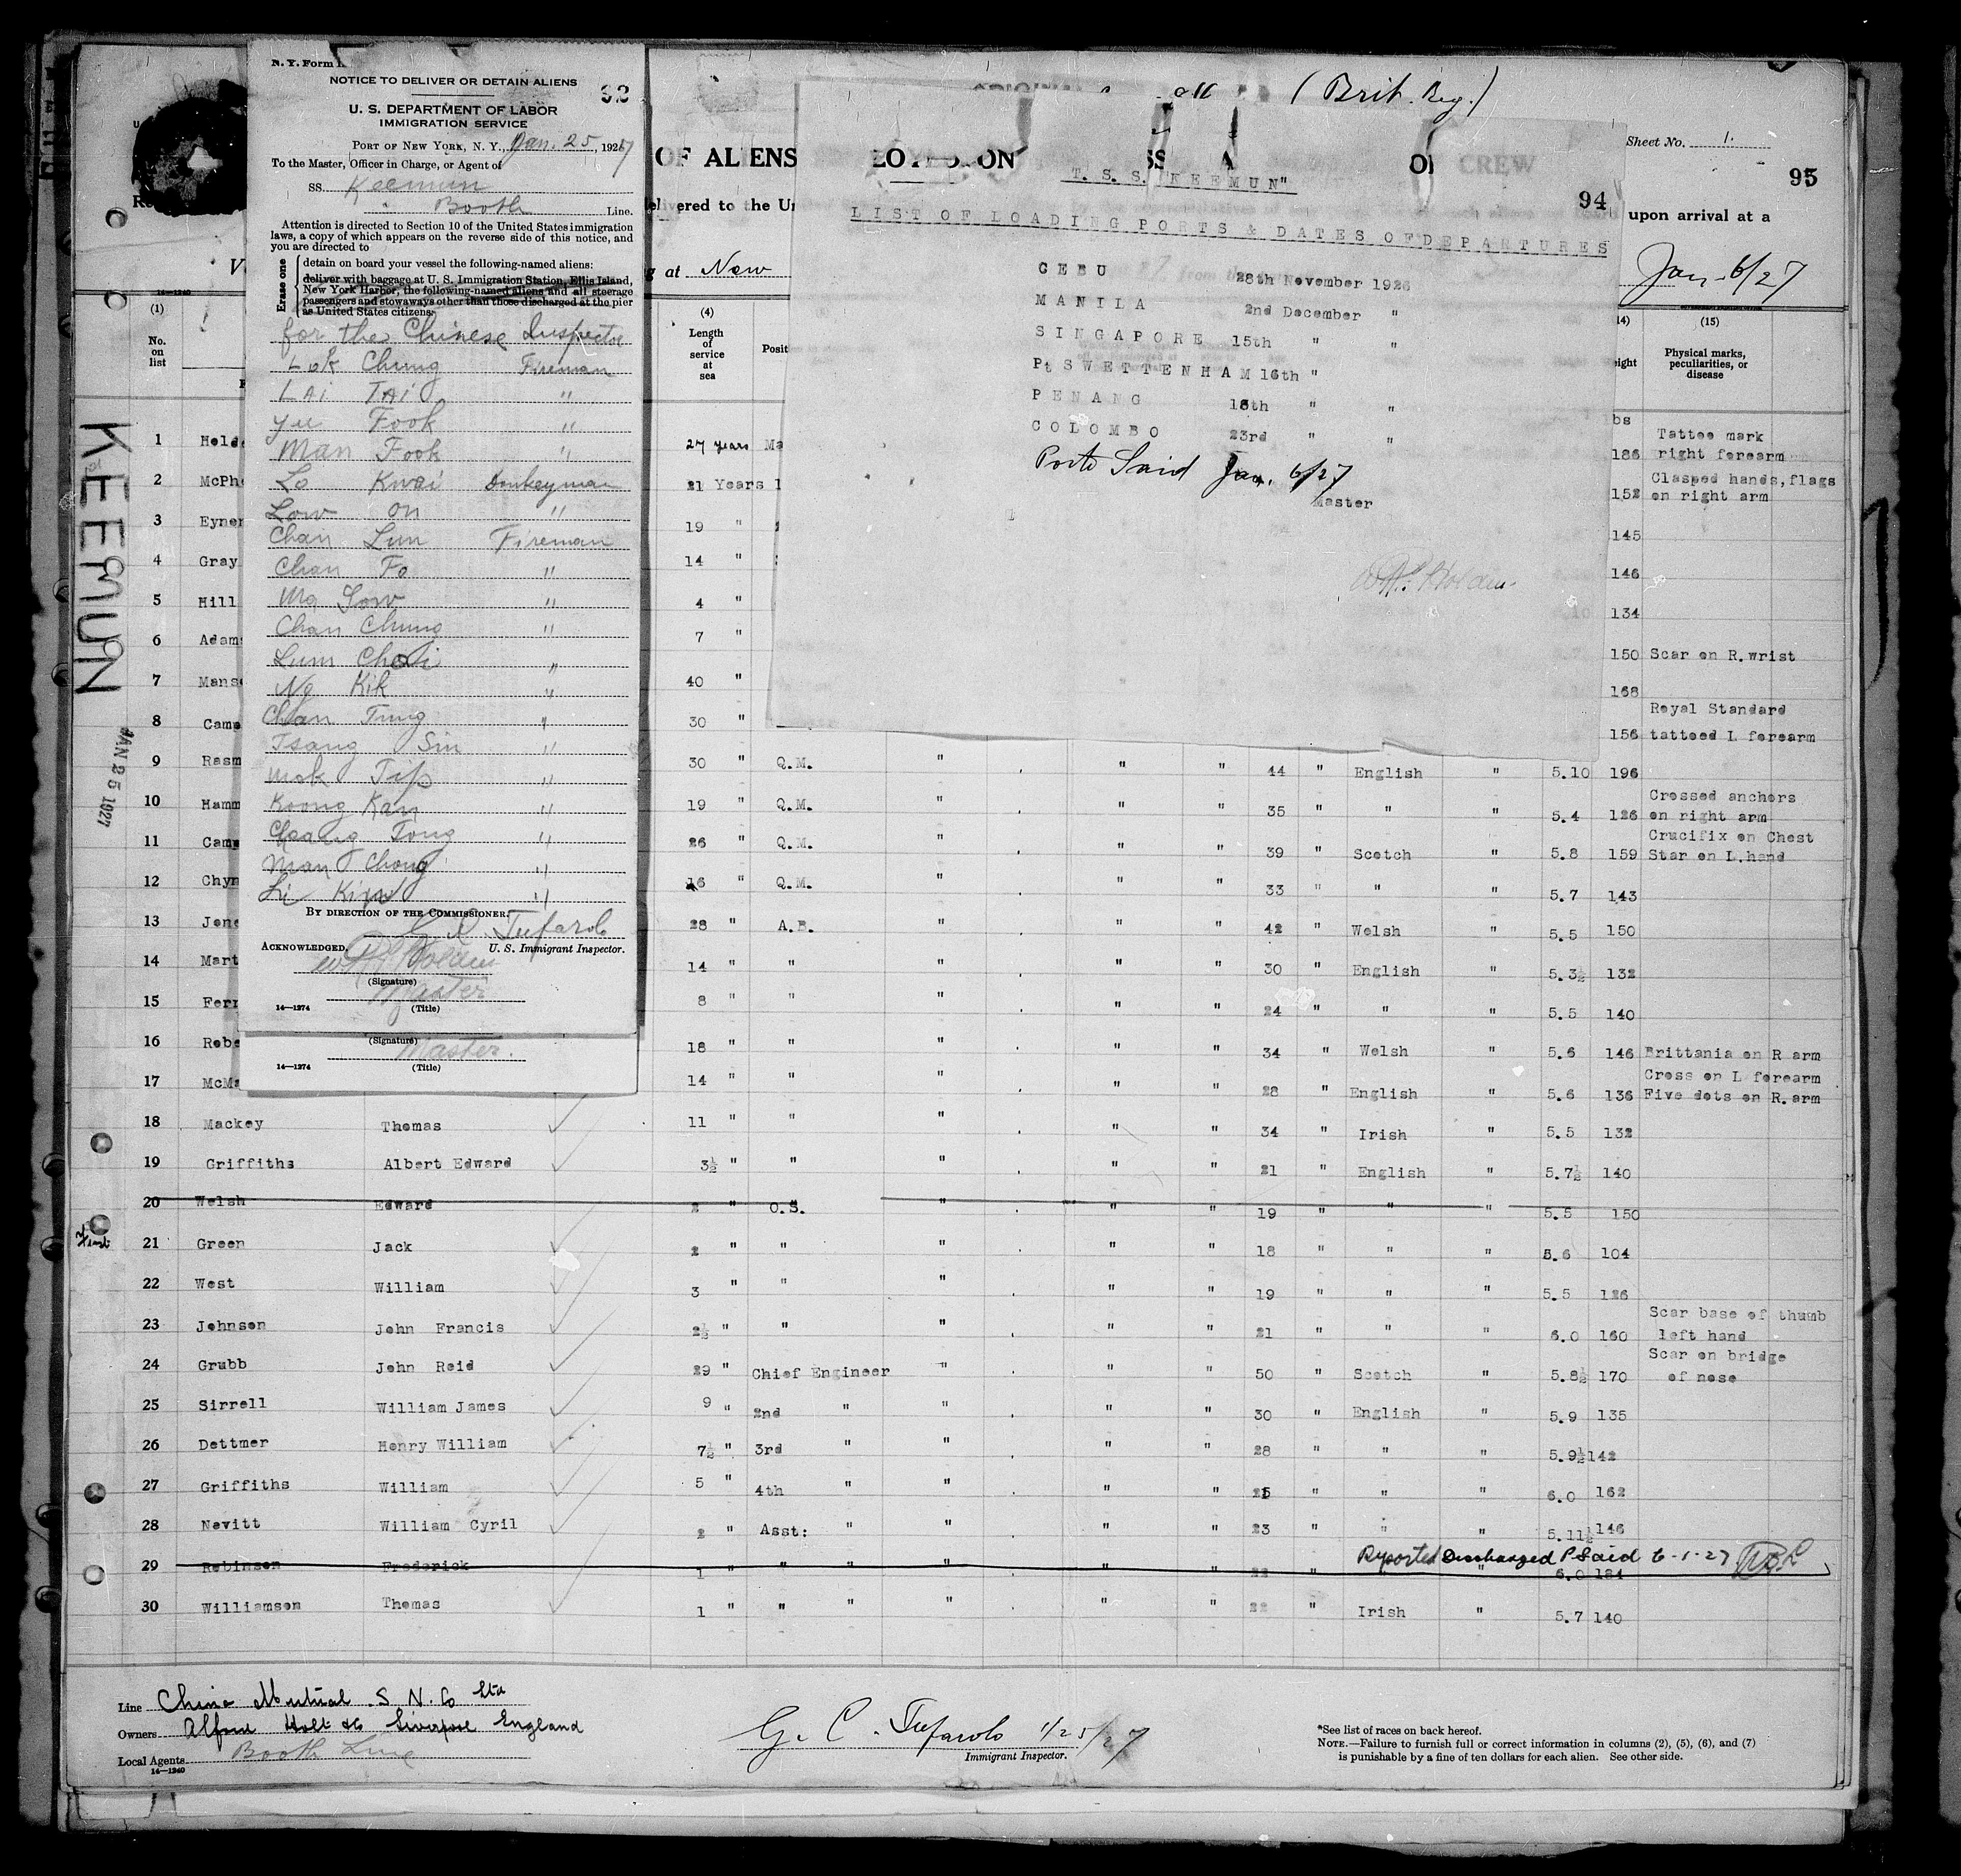 N. Y. Form
NOTICE TO DELIVER OR DETAIN ALIENS
U. S. DEPARTMENT OF LABOR
IMMIGRATION SERVICE
PORT OF NEW YORK, N. Y., Jan. 25, 1927
To the Master, Officer in Charge, or Agent of
SS Keemun
Booth Line.
Attention is directed to Section 10 of the United States immigration
laws, a copy of which appears on the reverse side of this notice, and
you are directed to
Erase one
detain on board your vessel the following-named aliens:
deliver with baggage at U. S. Immigration Station, Ellis Island,
New York Harbor, the following-named aliens and all steerage
passengers and stowaways other than those discharged at the pier
as United States citizens:
for the Chinese Inspector
Lok Chung Fireman
LAI TAI "
Yu Fook "
Man Fook "
Lo Kwai Donkeyman
Low on "
Chan Lun Fireman
Chan Fo "
Ma Sow "
Chan Chung "
Lum Choi "
Ng Kik "
Chan Tung "
Tsang Sin "
Mok Tip "
Koong Kan "
Cheang Tong "
Man Chong "
Li "
BY DIRECTION OF THE COMMISSIONER.
G C Tufarolo
ACKNOWLEDGED. U. S. Immigrant Inspector.
Holden
(Signature)
Master
14—1274 (Title)
(Signature)
Master.
14—1274 (Title)
(Brit. Reg.)
Sheet No. 1.
OF ALIENS ON CREW
95
94
T. S. S. "KEEMUN"
LIST OF LOADING PORTS & DATES OF DEPARTURES
upon arrival at a
at New
Jan. 6/27
CEBU 28th November 1926
MANILA 2nd December "
SINGAPORE 15th " "
Pt SWETTENHAM 16th "
PENANG 18th " "
COLOMBO 23rd " "
Porte Said Jan. 6/27
Master
Holden
KEEMUN
JAN 25 1927
(1) (4) (15)
No. on list
Length of service at sea
Physical marks, peculiarities, or disease
1 27 years 186 Tattoo mark right forearm
2 21 Years 152 Clasped hands, flags on right arm
3 19 " 145
4 Gray 14 " 146
5 Hill 4 " 134
6 7 " 150 Scar on R. wrist
7 40 " 168
8 30 " 156 Royal Standard tattoed L forearm
9 30 " Q.M. " " " 44 " English " 5.10 196
10 19 " Q.M. " " " 35 " " " 5.4 126 Crossed anchors on right arm
11 26 " Q.M. " " " 39 " Scotch " 5.8 159 Crucifix on Chest Star on L. hand
12 16 " Q.M. " " " 33 " " " 5.7 143
13 28 " A.B. " " " 42 " Welsh " 5.5 150
14 14 " " " " " 30 " English " 5.3½ 132
15 8 " " " " " 24 " " " 5.5 140
16 18 " " " " " 34 " Welsh " 5.6 146 Brittania on R arm
17 14 " " " " " 28 " English " 5.6 136 Cross on L forearm Five dots on R. arm
18 Mackey Thomas 11 " " " " " 34 " Irish " 5.5 132
19 Griffiths Albert Edward 3½ " " " " " 21 " English " 5.7½ 140
20 Welsh Edward 2 " O.S. " " " 19 " " " 5.5 150
21 Green Jack 2 " " " " " 18 " " " 5.6 104
22 West William 3 " " " " " 19 " " " 5.5 126
23 Johnson John Francis 2½ " " " " " 21 " " " 6.0 160 Scar base of thumb left hand
24 Grubb John Reid 29 " Chief Engineer " " " 50 " Scotch " 5.8½ 170 Scar on bridge of nose
25 Sirrell William James 9 " 2nd " " " " 30 " English " 5.9 135
26 Dettmer Henry William 7½ " 3rd " " " " 28 " " " 5.9½ 142
27 Griffiths William 5 " 4th " " " " " " " 6.0 162
28 Nevitt William Cyril 2 " Asst: " " " " 23 " " " 5.11½ 146
Reported Discharged P Said 6-1-27
29 Robinson Frederick 1 " " " " " " 22 " " 6.0 184
30 Williamson Thomas 1 " " " " " " 22 " Irish " 5.7 140
Line China Mutual S. N. Co Ltd
Owners Alfred Holt & Co Liverpool England
Local Agents Booth Line
14—1240
G. C. Tufarolo 1/25/27
Immigrant Inspector.
*See list of races on back hereof.
NOTE.—Failure to furnish full or correct information in columns (2), (5), (6), and (7)
is punishable by a fine of ten dollars for each alien. See other side.